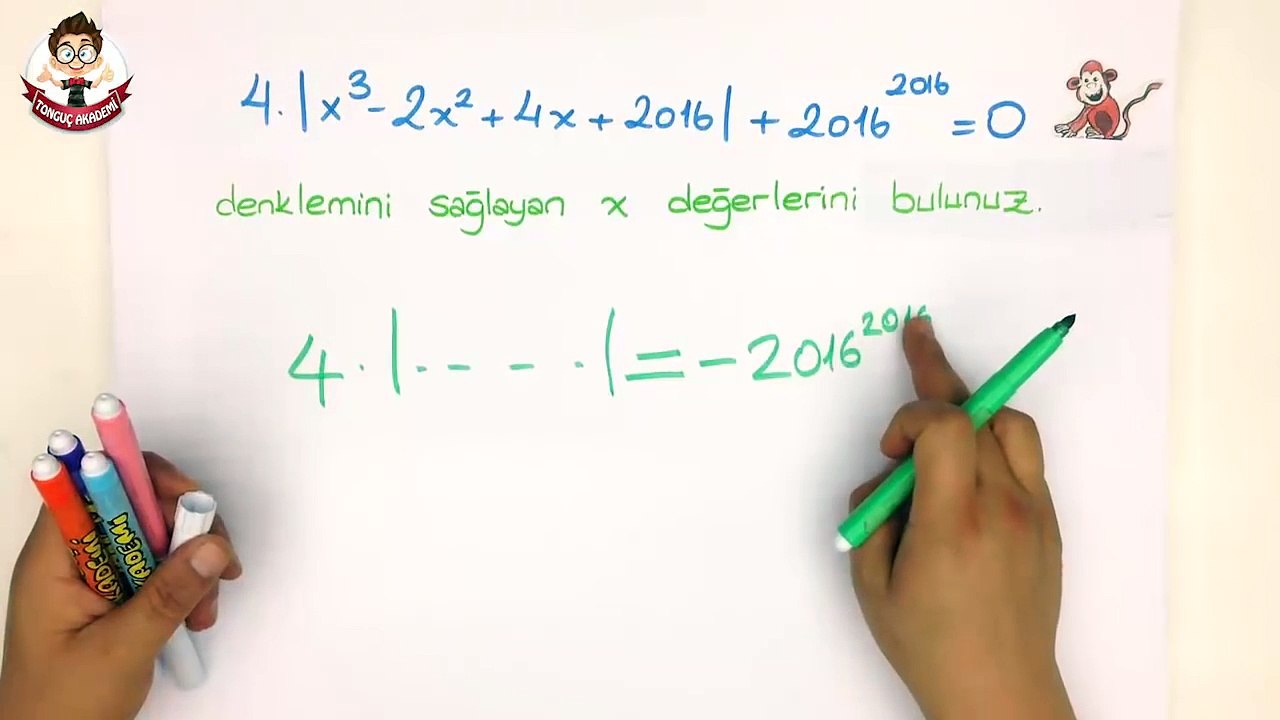 TONGUÇ AKADEMİ
4.|x³-2x²+4x+2016|+2016²⁰¹⁶=0
denklemini sağlayan x değerlerini bulunuz.
4.|.--.|=-2016²⁰¹⁶